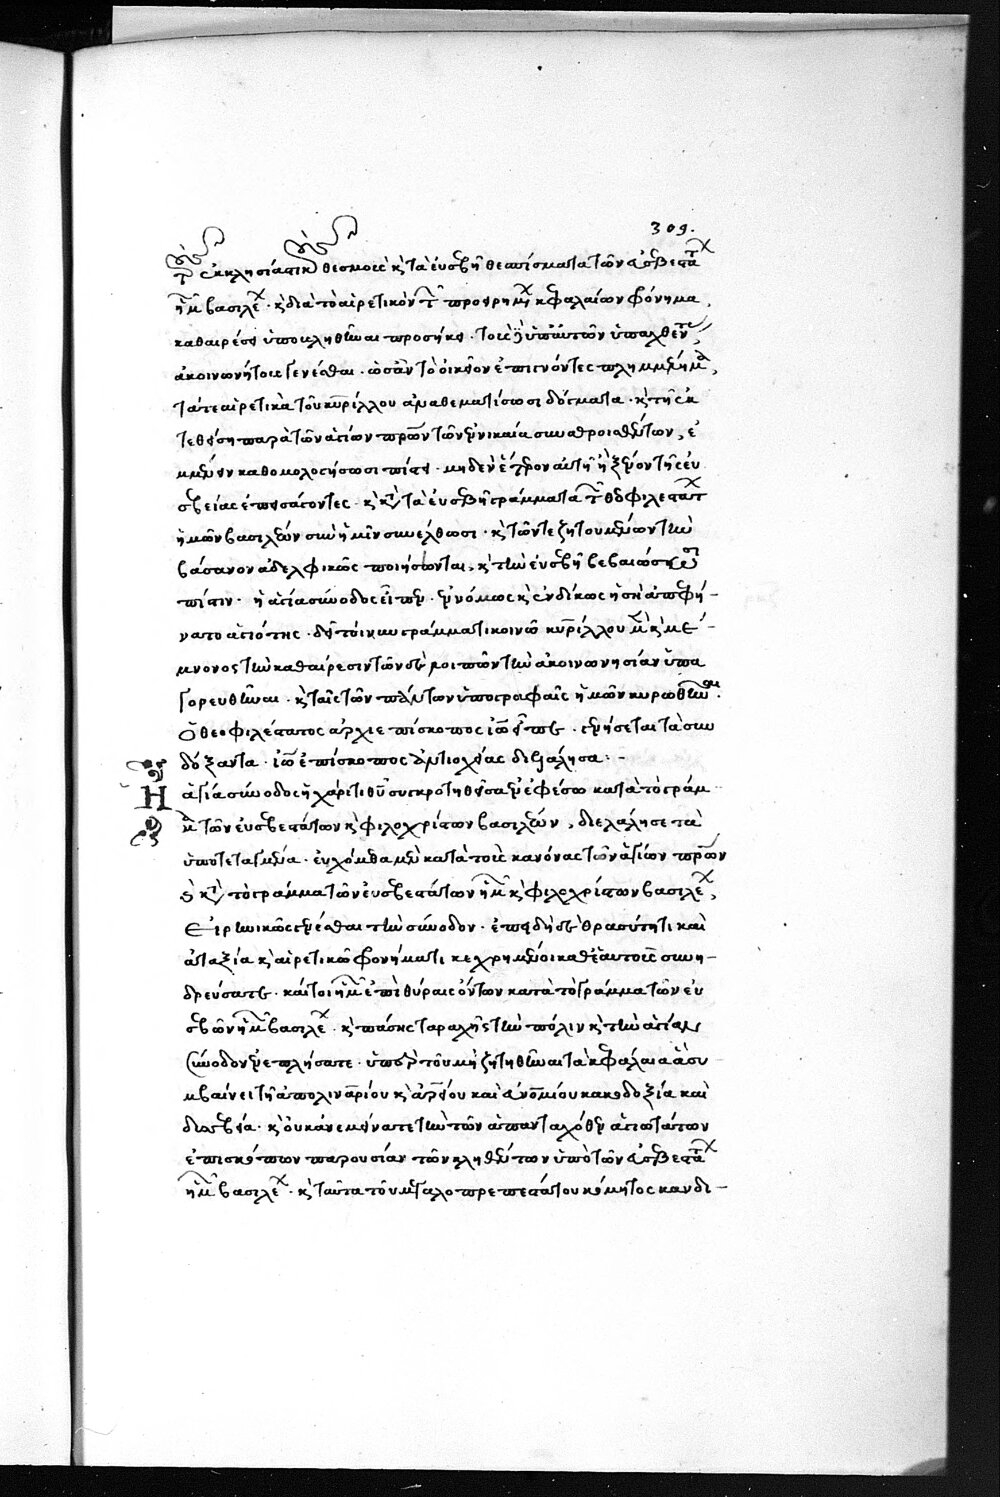 309.
τοὺς ἐκκλησιαστικοὺς θεσμοὺς κὶ τὰ εὐσεβῆ θεσπίσματα τῶν εὐσεβεστάτων
ἡμῶν βασιλέων · κὶ διὰ τὸ αἱρετικὸν τῶν προειρημένων κεφαλαίων φρόνημα,
καθαιρέσει ὑποκληθῆναι προσήκει · τοὺς δὲ ὑπ' αὐτῶν ὑπαχθέντας,
ἀκοινωνήτους γενέσθαι · ὡς ἂν τὸ οἰκεῖον ἐπιγνόντες πλημμέλημα,
τά τε αἱρετικὰ τοῦ κυρίλλου ἀναθεματίσωσι δόγματα · κὶ τῇ ἐκ
τεθείσῃ παρὰ τῶν ἁγίων πατέρων τῶν ἐν νικαία συναθροισθέντων, ἐ
μμένειν καθομολογήσωσι πίστει · μηδὲν ἕτερον αὐτῇ ἢ ξένον τῆς εὐ
σεβείας ἐπεισάγοντες · κὶ κατὰ τὰ εὐσεβῆ γράμματα τῶν θεοφιλεστάτων
ἡμῶν βασιλέων σὺν ἡμῖν συνέλθωσι · κὶ τῶν τε ζητουμένων τὴν
βάσανον ἀδελφικῶς ποιήσωνται, κὶ τὴν εὐσεβῆ βεβαιώσωσι
πίστιν · ἡ ἁγία σύνοδος εἶπεν · ἐννόμως κὶ ἐνδίκως ἡ σὴ ἀπεφή-
νατο ἁγιότης · δεῖ τοίνυν γράμματι κοινῶ κυρίλλου μὲν κὶ μέ-
μνονος τὴν καθαίρεσιν τῶν δὲ λοιπῶν τὴν ἀκοινωνησίαν ὑπα
γορευθῆναι · κὶ ταῖς τῶν πάντων ὑπογραφαῖς ἡμῶν κυρωθῆναι ·
ὁ θεοφιλέστατος ἀρχιεπίσκοπος ἰωάννης εἶπε · γενήσεται τὰ συν
δόξαντα · ἰωάννης ἐπίσκοπος ἀντιοχείας διελάλησα · -
Η ἁγία σύνοδος ἡ χάριτι θεοῦ συγκροτηθεῖσα ἐν ἐφέσω κατὰ τὸ γράμ-
μα τῶν εὐσεβεστάτων κὶ φιλοχρίστων βασιλέων, διελάλησε τὰ
ὑποτεταγμένα · εὐχόμεθα μὲν κατὰ τοὺς κανόνας τῶν ἁγίων πατέρων
κὶ κατὰ τὸ γράμμα τῶν εὐσεβεστάτων ἡμῶν κὶ φιλοχρίστων βασιλέων,
εἰρηνικῶς γενέσθαι τὴν σύνοδον · ἐπειδὴ δὲ θρασύτητι καὶ
ἀταξία κὶ αἱρετικῶ φρονήματι κεχρημένοι καθ' ἑαυτοὺς συνη-
δρεύσατε · καίτοι ἡμῶν ἐπὶ θύραις ὄντων κατὰ τὸ γράμμα τῶν εὐ
σεβῶν ἡμῶν βασιλέων · κὶ πάσης ταραχῆς τὴν πόλιν κὶ τὴν ἁγίαν
σύνοδον ἐνεπλήσατε · ὑπὲρ τοῦ μὴ ζητηθῆναι τὰ κεφάλαια ἃ συ
μβαίνει τῇ ἀπολιναρίου κὶ ἀρείου καὶ εὐνομίου κακοδοξία καὶ
δυσσεβεία · κὶ οὐκ ἀνεμείνατε τὴν τῶν ἁπανταχόθεν ἁγιωτάτων
ἐπισκόπων παρουσίαν τῶν κληθέντων ὑπὸ τῶν εὐσεβεστάτων
ἡμῶν βασιλέων · κὶ ταῦτα τοῦ μεγαλοπρεπεστάτου κόμητος κανδι-